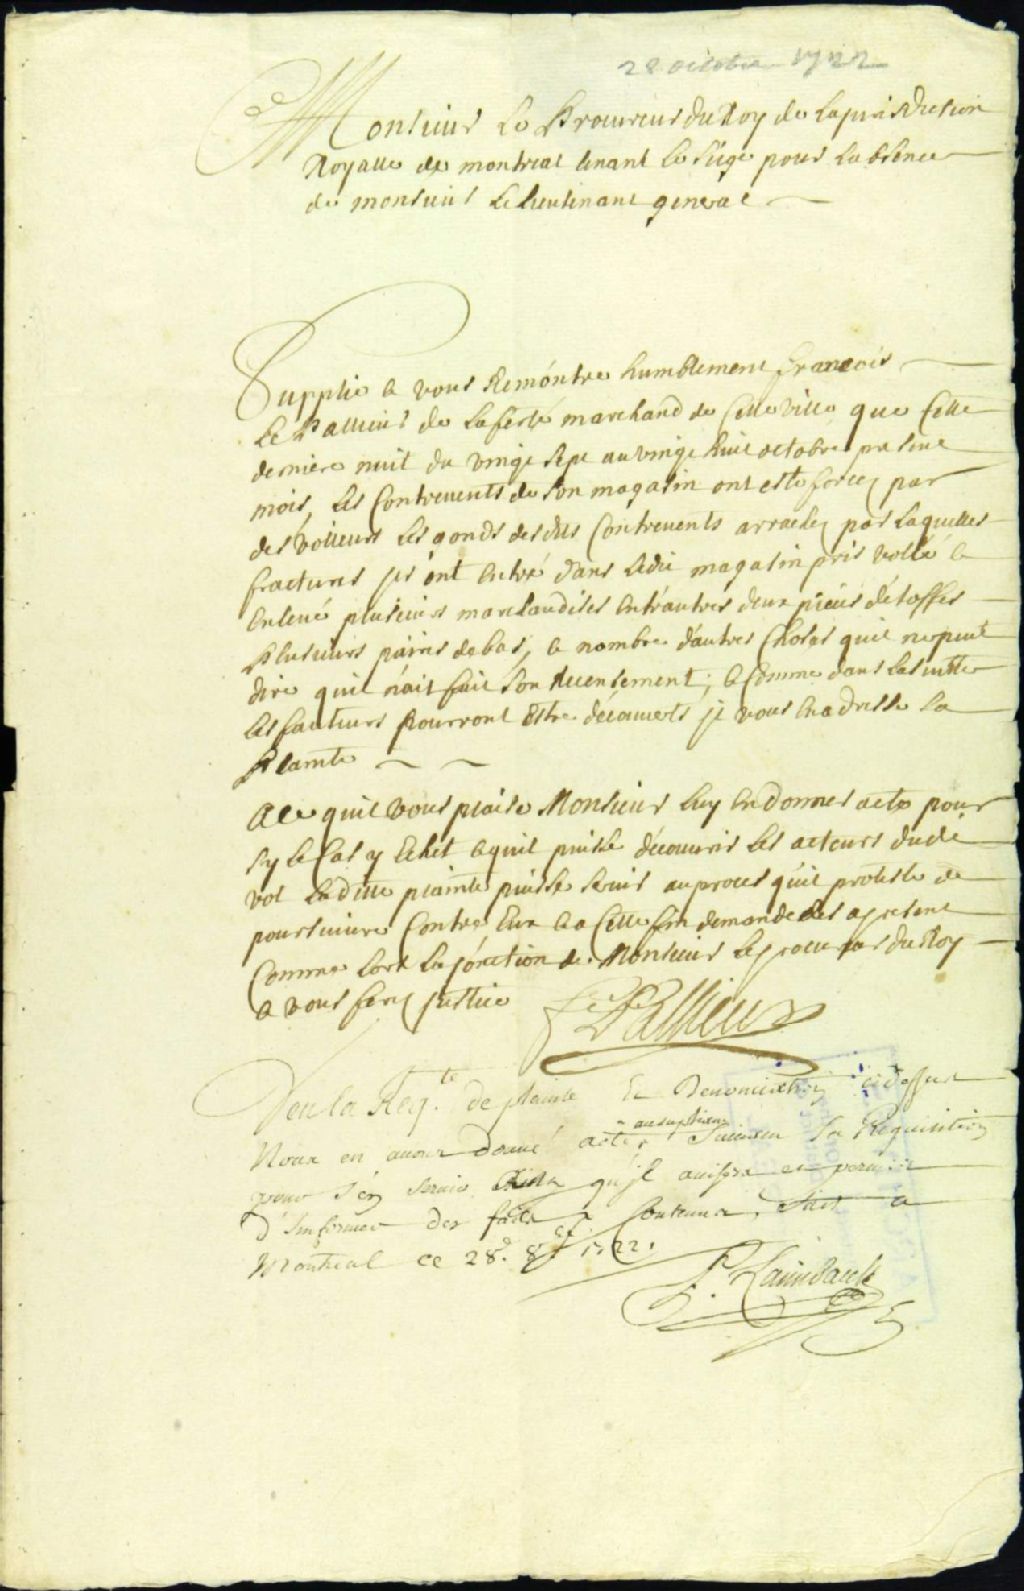 28 octobre 1722
Monsieur Le Procureur du Roy de La jurisdiction
Royalle de montreal tenant Le siege pour Labsence
de monsieur Le Lieutenant general
Supplie & vous Remontre humblement francois
Le Pallieur de Laferté marchand de Cette ville que Cette
derniere nuit du vingt sept au vingt huit octobre present
mois, Les Contrevents de son magasin ont esté forcez par
des volleurs Les gonds desdits Contrevents arrachez par Laquelles
fractures ils ont Entré dans Ledit magasin pris vollé &
Enlevé plusieurs marchandises Entrautres deux pieces détoffes
Plusieurs paires de bas, & nombre dautres Choses quil ne peut
dire quil nait fait son Recensement; & Comme dans La suitte
Les fauteurs Pourront Estre decouverts je vous En adresse La
Plainte
A Ce quil vous plaise Monsieur Luy En donner acte pour
sy Le Cas y Echet & quil puisse découvrir Les acteurs dudit
vol Laditte plainte puisse servir au proces quil proteste de
poursuivre Contre Eux & a Cette fin demande des apresent
Comme Lors La jonction de Monsieur Le procureur du Roy
& vous ferez justice
LePallieur
Veu la Req.te de plainte Et Denonciation cy dessus
Nous en avons donné acte au supliant Suivant Sa Requisition
pour s'en servir qu'il avisera et permis
d'Informer des faits y Contenus, fait a
Montreal ce 28e. 8bre 1722.
P. Raimbault